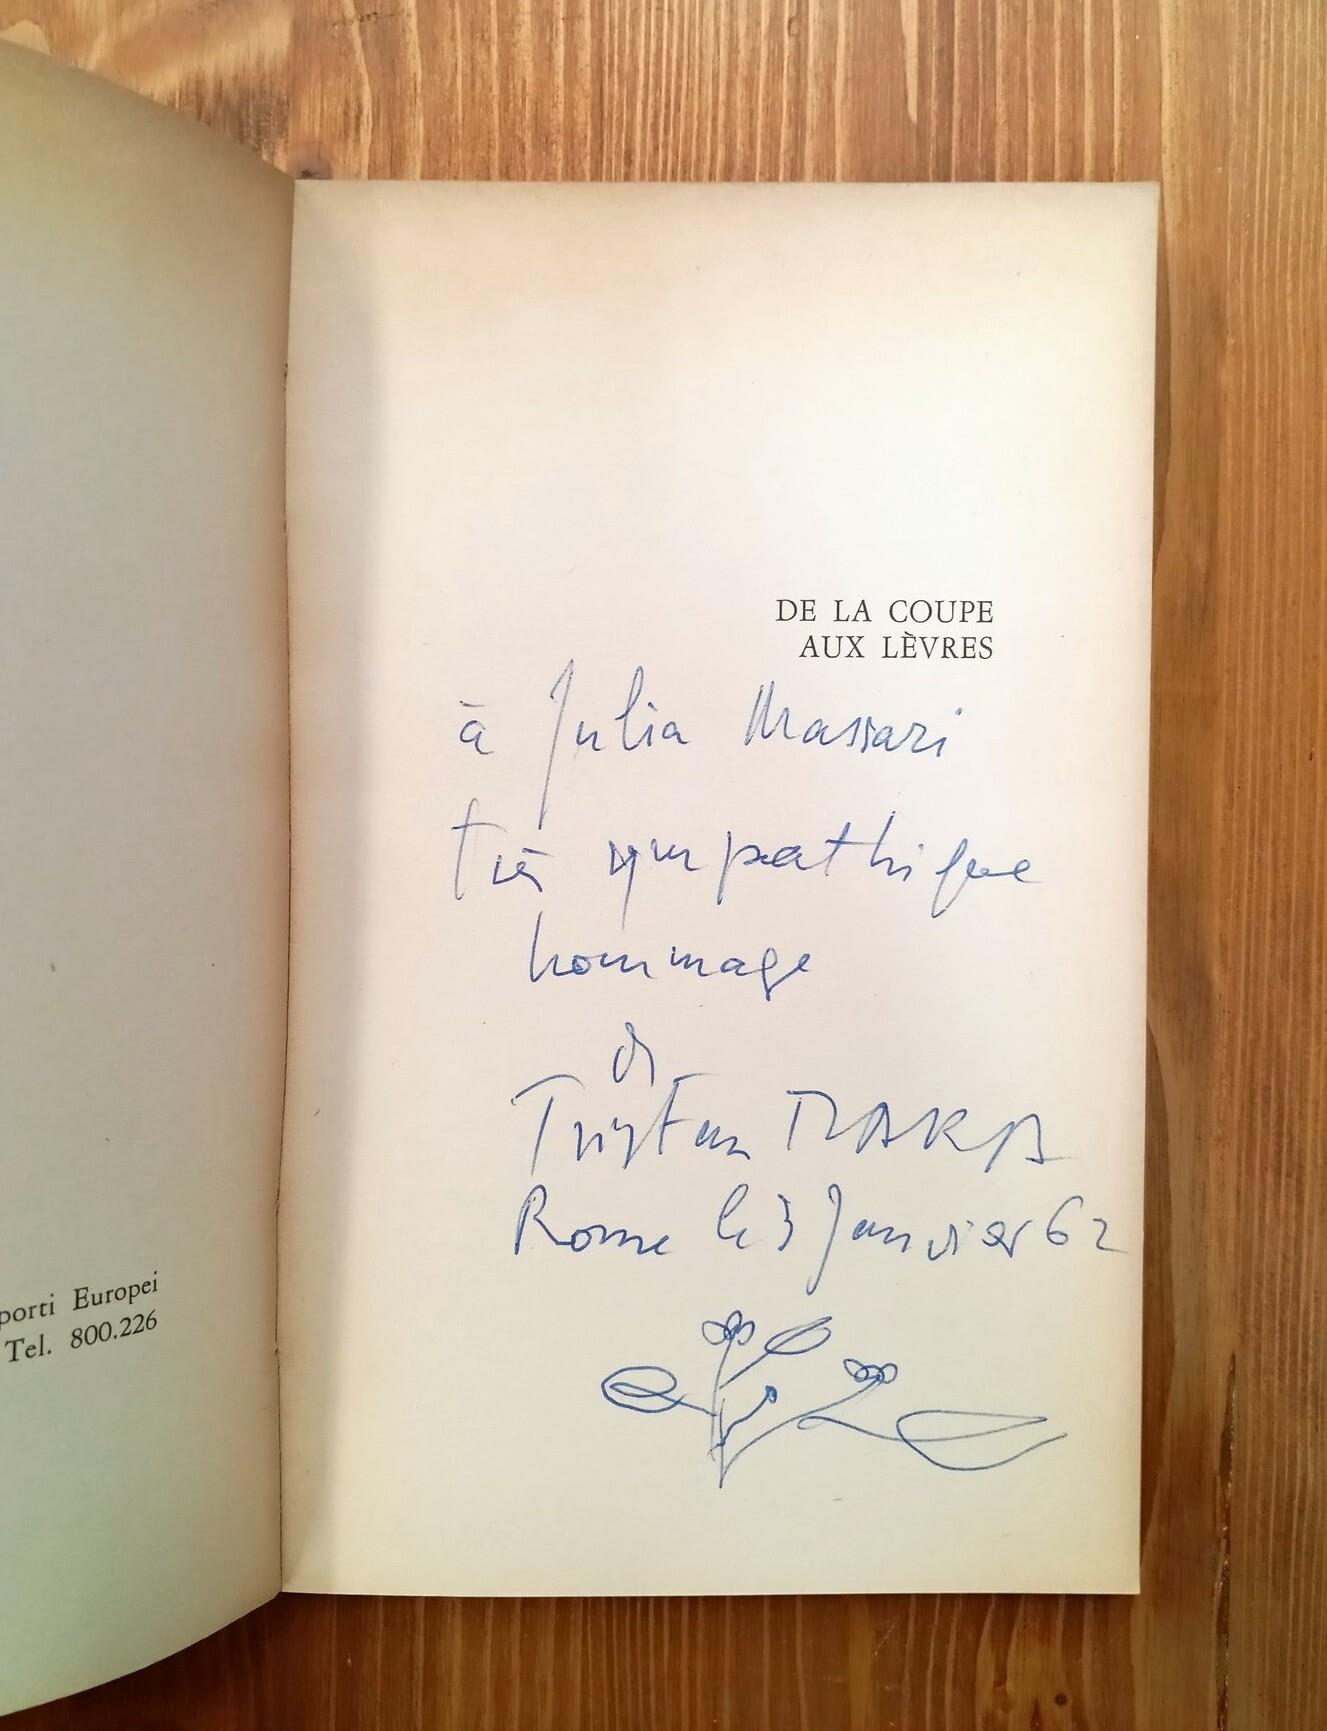 porti Europei
Tel. 800.226
DE LA COUPE
AUX LÈVRES
à Julia Massari
très sympathique
hommage
de
Tristan TZARA
Rome le 3 Janvier 62